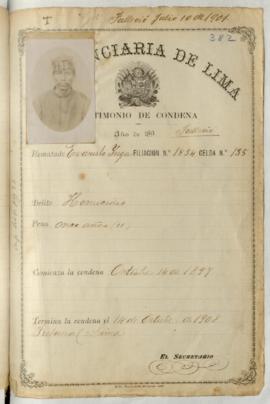 Falleció Julio 10 de 1901
382
NCIARIA DE LIMA
TIMONIO DE CONDENA
Año de 189
Falleció
Rematado FILIACION N.º 1834 CELDA N.º 135
Delito Homicidio
Pena once años (11)
Comienza la condena Octubre 14 de 1897
Termina la condena el 14 de Octubre de 1908
Lima
EL SECRETARIO